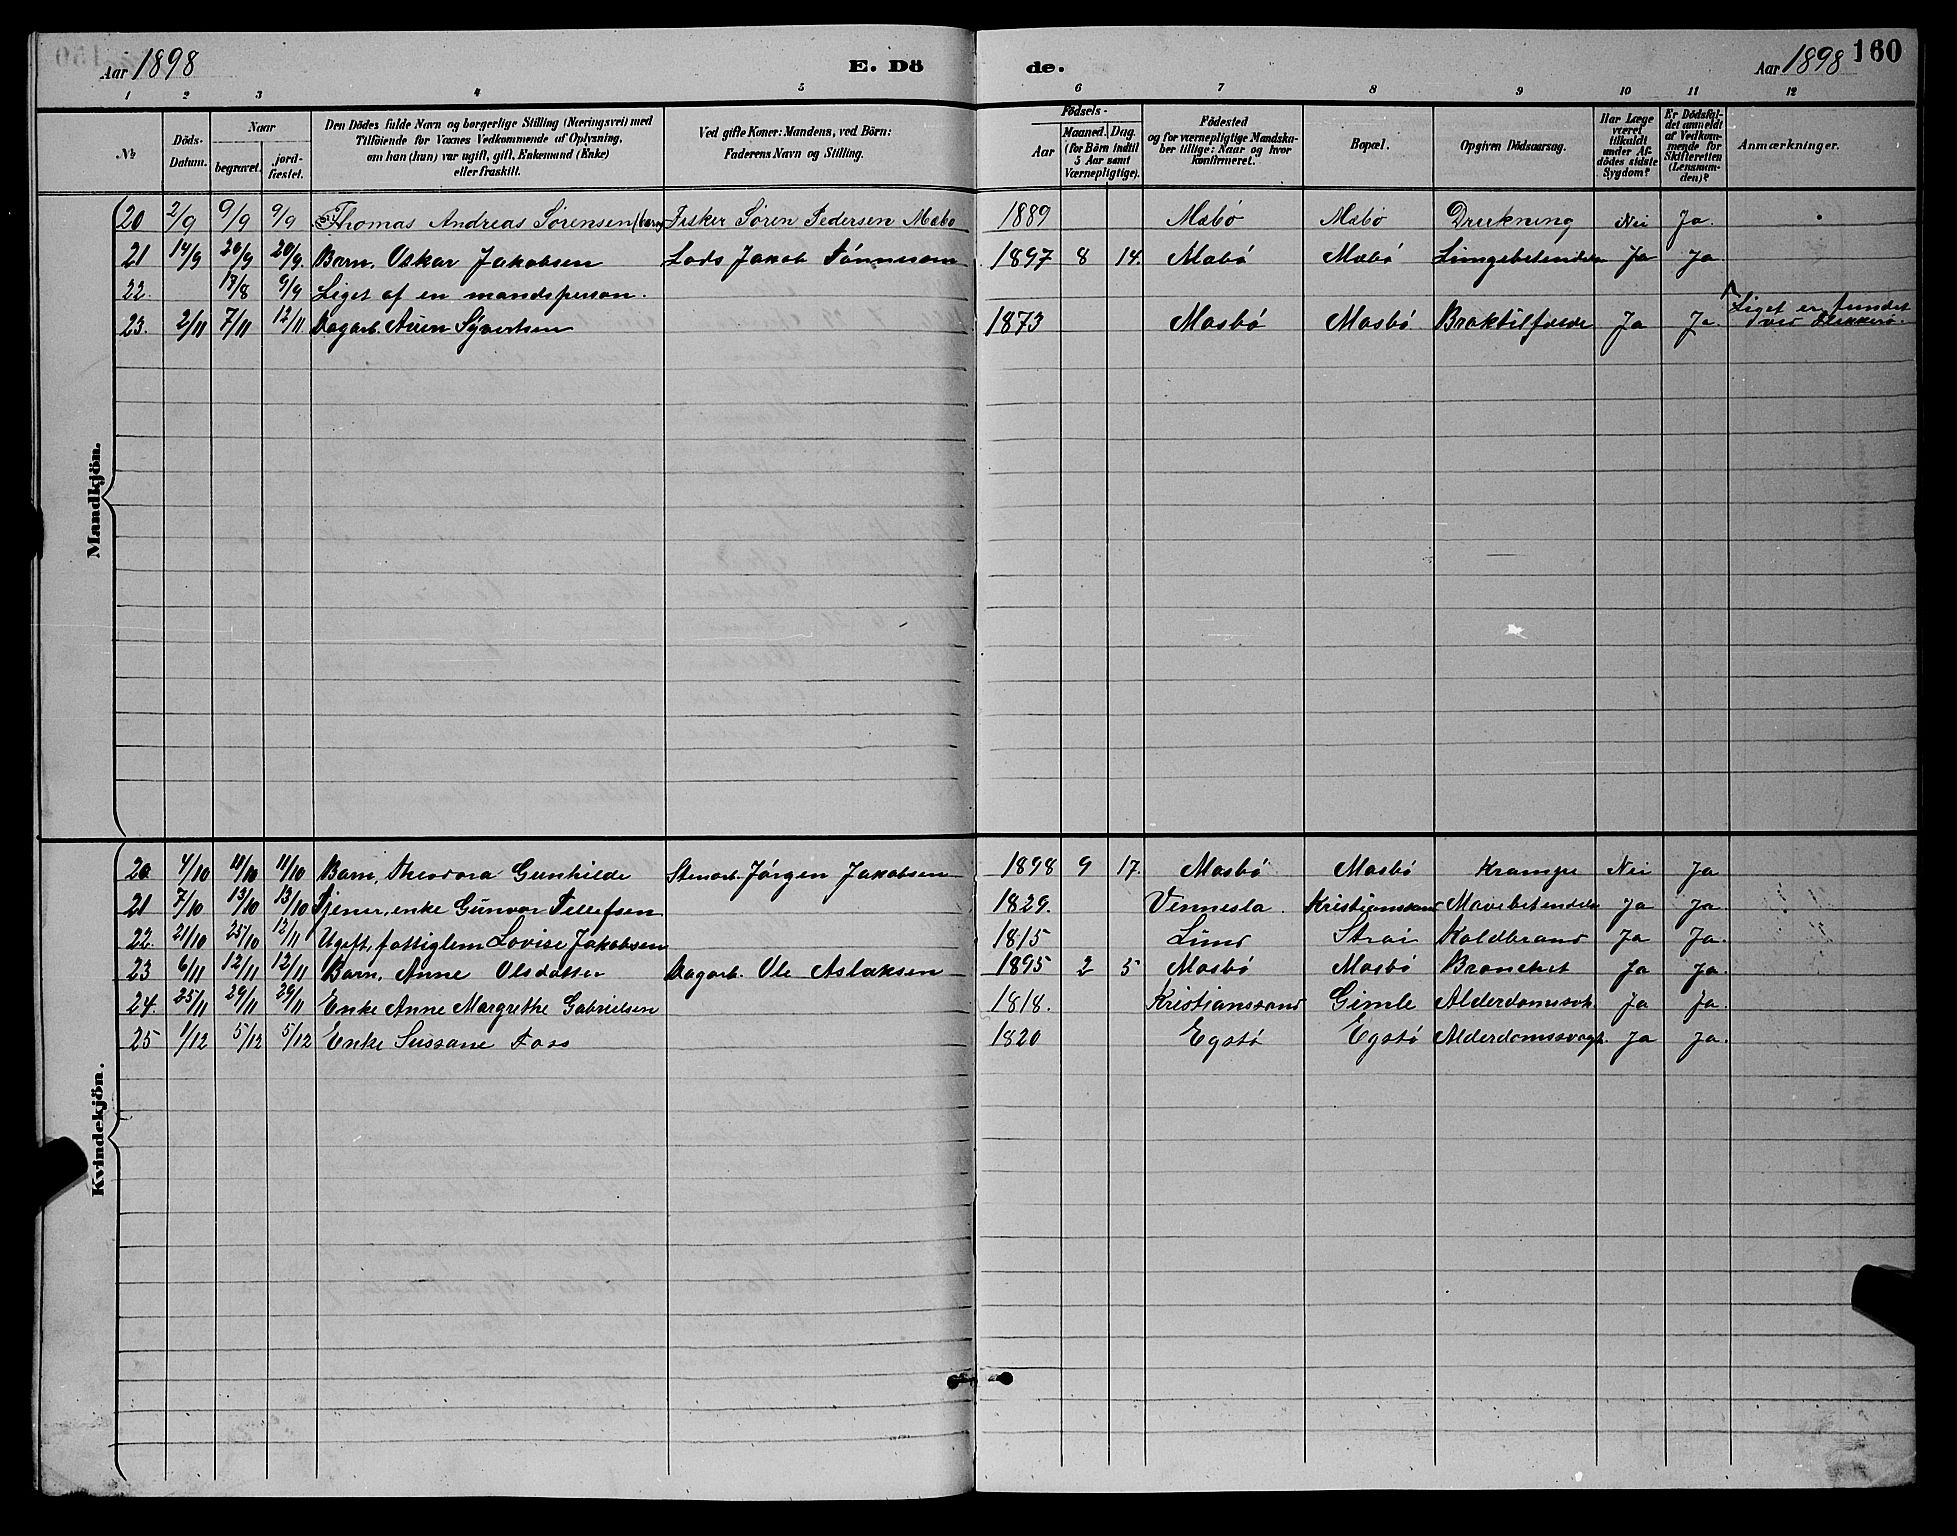 Aar 1898 E. Dö de. Aar 1898 160
1 2 3 4 5 6 7 8 9 10 11 12
№ Döds-Datum. Naar begravet. jord-fæstet. Den Dödes fulde Navn og borgerlige Stilling (Næringsvei) med Tilföiende for Voxnes Vedkommende af Oplysning, om han (hun) var ugift, gift, Enkemand (Enke) eller fraskilt. Ved gifte Koner: Mandens, ved Börn: Faderens Navn og Stilling. Födsels- Aar Maaned. Dag. (for Börn indtil 5 Aar samt Værnepligtige). Födested og for værnepligtige Mandska-ber tillige: Naar og hvor konfirmeret. Bopæl. Opgiven Dödsaarsag. Har Læge været tilkaldt under Af-dödes sidste Sygdom? Er Dödsfal-det anmeldt af Vedkom-mende for Skifteretten (Lensman-den)? Anmærkninger.
Mandkjön.
20 2/9 9/9 9/9 Thomas Andreas Sørensen (barn) Fisker Søren Pedersen Mæbø 1889 Mæbø Mæbø Drukning Nei Ja
21 14/9 20/9 20/9. Barn, Oskar Jakobsen Lods Jakob Tønnesen 1897 8 14. Mæbø Mæbø Lungebetendelse Ja Ja
22. 18/8 9/9 Liget af en mandsperson. Liget er fundet ved Flekkerø.
23. 2/11 7/11 12/11 Dagarb. Syvertsen 1873 Mosbø Mosbø Braktilfælde Ja Ja.
Kvindekjön.
20 4/10 11/10 11/10 Barn, Theodora Gunhilde Stenarb. Jørgen Jakobsen 1898 9 17. Mosbø Mosbø Krampe Nei Ja
21 7/10 13/10 13/10 Tjener, enke Gunvor Tellefsen 1829. Vennesla. Kristianssand Mavebetendelse Ja Ja.
22. 21/10 25/10 12/11 Ugift, fattiglem Lovise Jakobsen 1815 Lund Strai Koldbrand Ja Ja.
23 6/11 12/11 12/11 Barn, Anne Olsdatter Dagarb. Ole Aslaksen 1895 2 5 Mosbø Mosbø Bronchit Ja Ja.
24. 25/11 29/11 29/11 Enke Anne Margrethe Gabrielsen 1818. Kristianssand Gimle Alderdomssvh. Ja Ja.
25 1/12 5/12 5/12 Enke Sussane Foss 1820 Egstø Egstø Alderdomssvagh. Ja Ja.